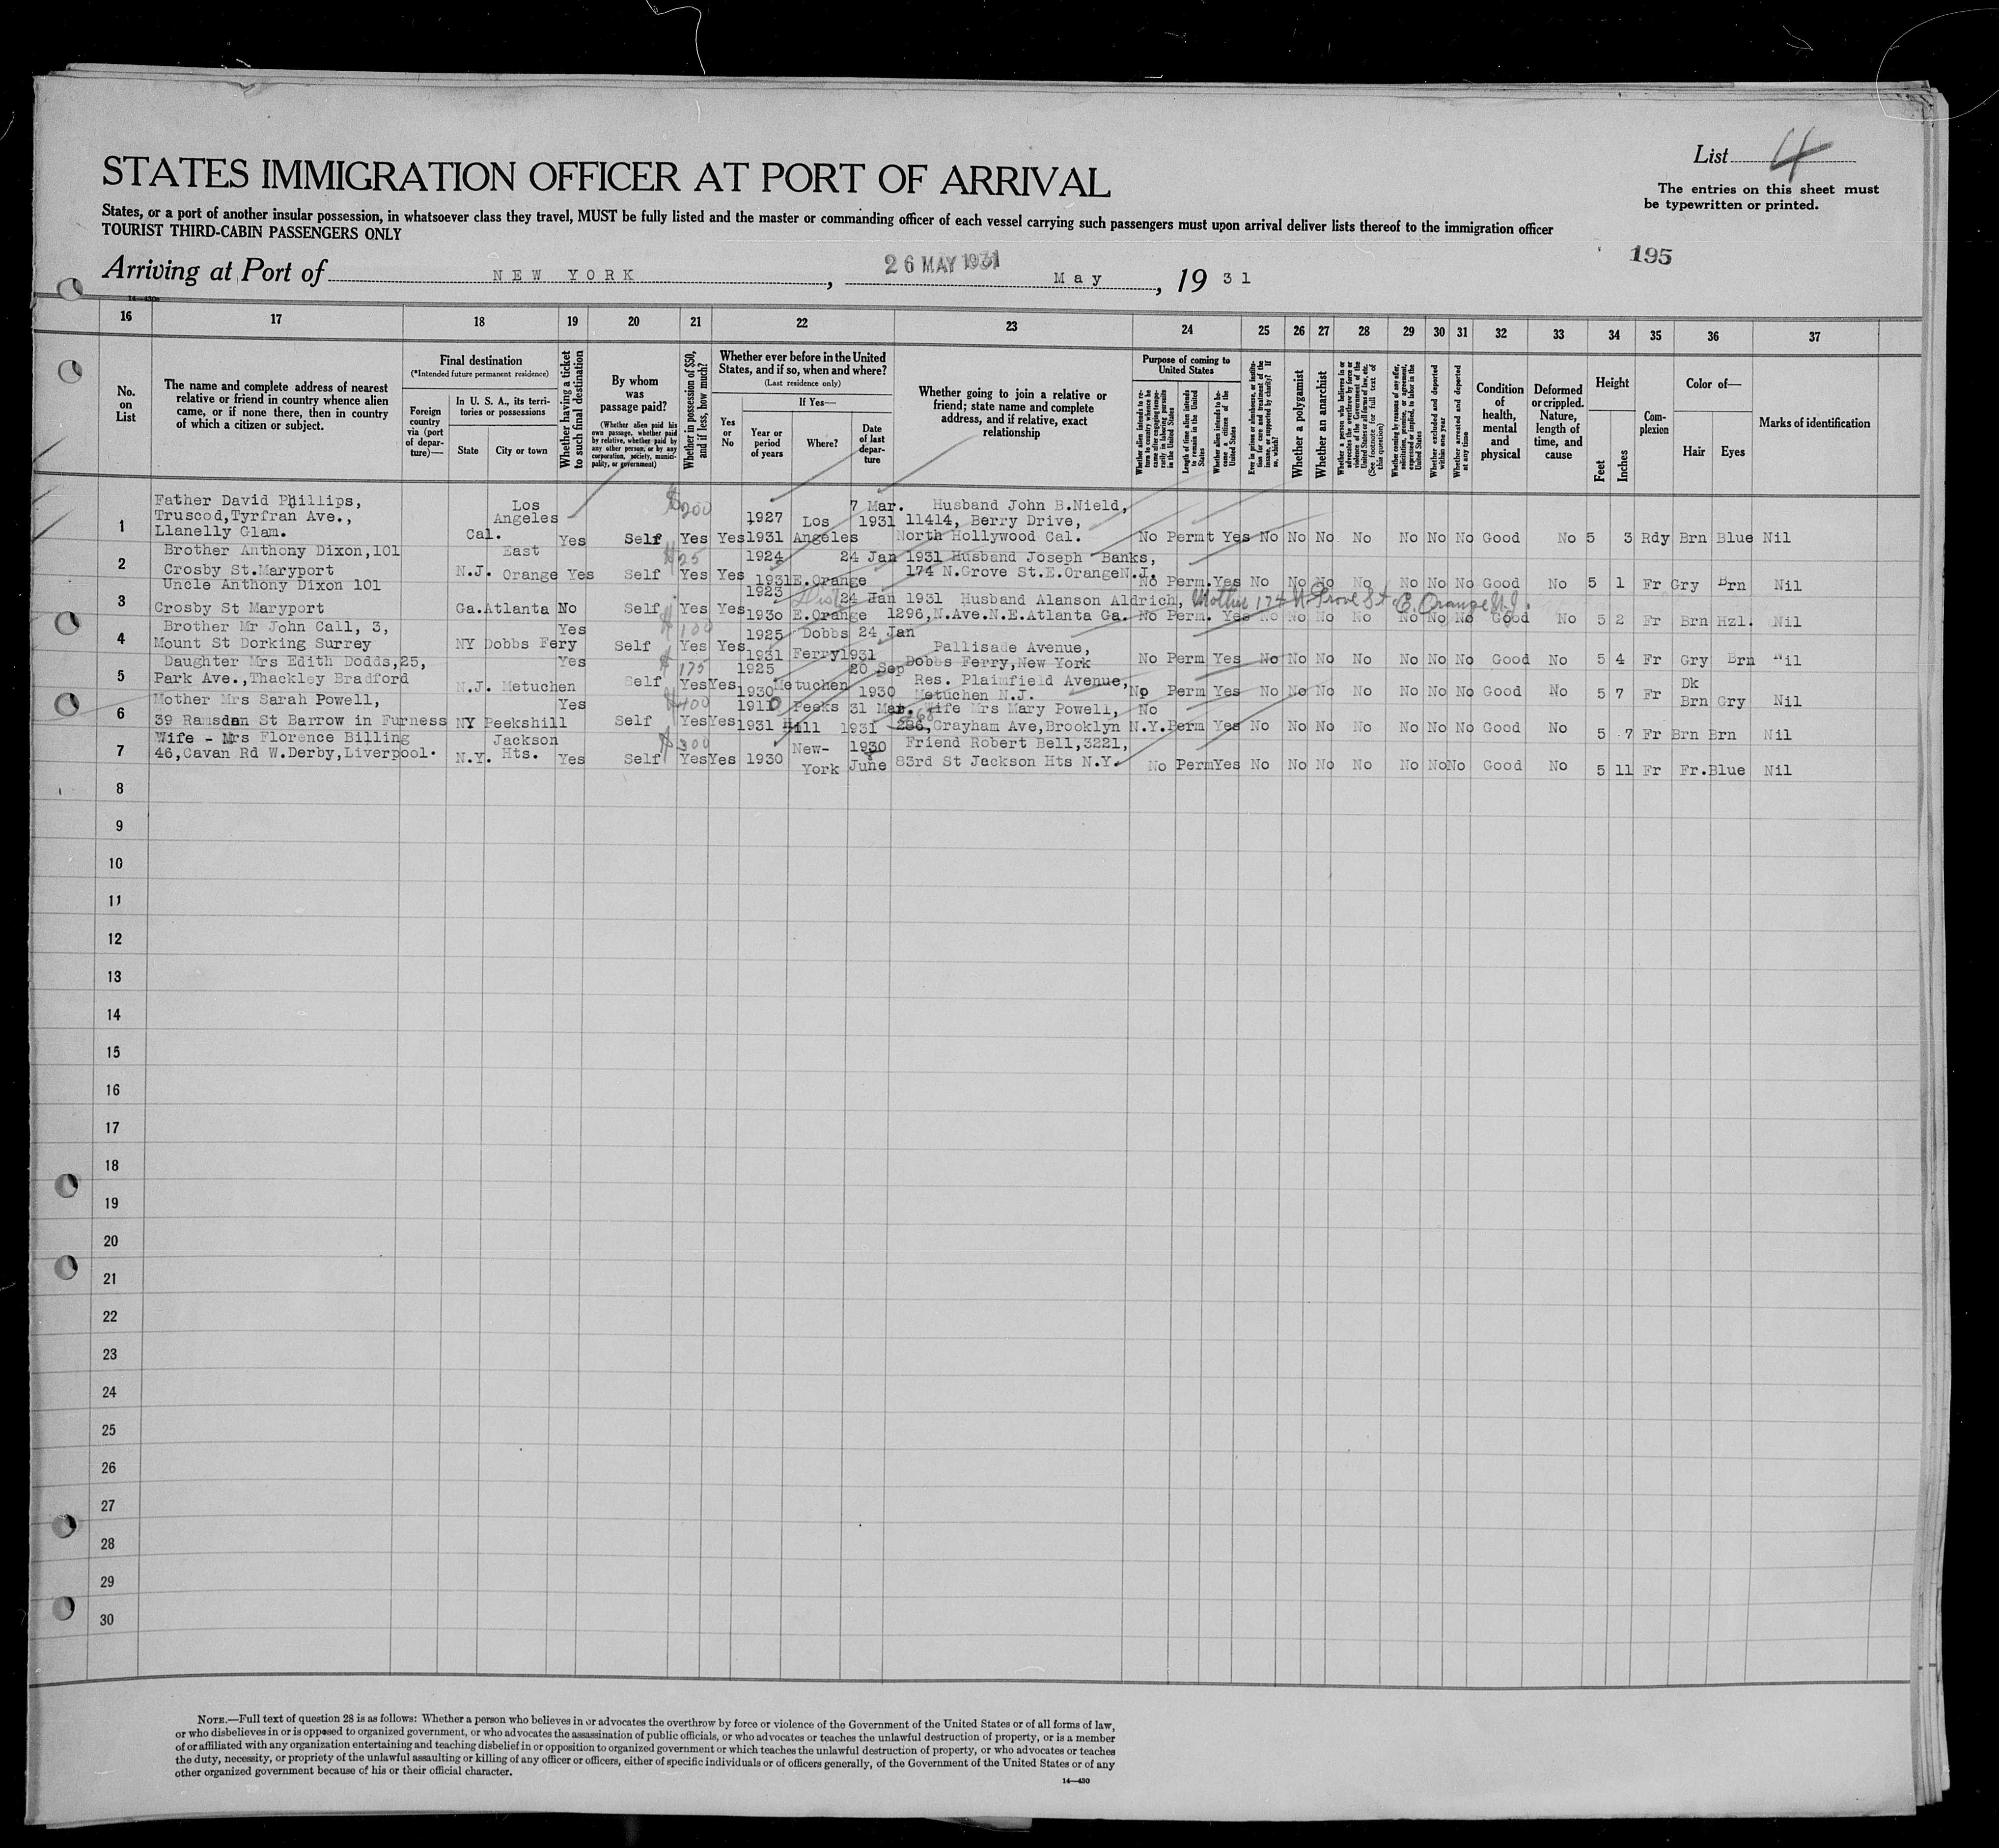 List 4
The entries on this sheet must
be typewritten or printed.
STATES IMMIGRATION OFFICER AT PORT OF ARRIVAL
States, or a port of another insular possession, in whatsoever class they travel, MUST be fully listed and the master or commanding officer of each vessel carrying such passengers must upon arrival deliver lists thereof to the immigration officer
TOURIST THIRD-CABIN PASSENGERS ONLY
195
Arriving at Port of NEW YORK, 26 MAY 1931 May, 1931
16 17 18 19 20 21 22 23 24 25 26 27 28 29 30 31 32 33 34 35 36 37
No. on List
The name and complete address of nearest
relative or friend in country whence alien
came, or if none there, then in country
of which a citizen or subject.
Final destination
(*Intended future permanent residence)
Foreign country via (port of departure)—
In U. S. A., its territories or possessions
State City or town
Whether having a ticket to such final destination
By whom was passage paid?
(Whether alien paid his own passage, whether paid by relative, whether paid by any other person, or by any corporation, society, municipality, or government)
Whether in possession of $50, and if less, how much?
Whether ever before in the United
States, and if so, when and where?
(Last residence only)
Yes or No
If Yes—
Year or period of years
Where?
Date of last departure
Whether going to join a relative or
friend; state name and complete
address, and if relative, exact
relationship
Purpose of coming to United States
Length of time alien intends to remain in the United States
Whether alien intends to become a citizen of the United States
Whether a polygamist
Whether an anarchist
Whether excluded and deported within one year
Whether arrested and deported at any time
Condition of health, mental and physical
Deformed or crippled. Nature, length of time, and cause
Height
Feet Inches
Complexion
Color of—
Hair Eyes
Marks of identification
1 Father David Phillips, Truscod, Tyrfran Ave., Llanelly Glam. Cal. Los Angeles Yes Self $200 Yes Yes 1927 1931 Los Angeles 7 Mar. 1931 Husband John B.Nield, 11414, Berry Drive, North Hollywood Cal. No Permt Yes No No No No No No No Good No 5 3 Rdy Brn Blue Nil
2 Brother Anthony Dixon,101 Crosby St.Maryport N.J. East Orange Yes Self $25 Yes Yes 1924 1931 E.Orange 24 Jan 1931 Husband Joseph Banks, 174 N.Grove St.E.OrangeN.J. No Perm.Yes No No No No No No No Good No 5 1 Fr Gry Brn Nil
3 Uncle Anthony Dixon 101 Crosby St Maryport Ga.Atlanta No Self Yes Yes 1923 1930 E.Orange 24 Jan 1931 Husband Alanson Aldrich, 1296,N.Ave.N.E.Atlanta Ga. Mother 174 N Grove St. E. Orange N.J. No Perm. Yes No No No No No No No Good No 5 2 Fr Brn Hzl. Nil
4 Brother Mr John Call, 3, Mount St Dorking Surrey NY Dobbs Fery Yes Self $100 Yes Yes 1925 1931 Dobbs Ferry 24 Jan 1931 Pallisade Avenue, Dobbs Ferry,New York No Perm Yes No No No No No No No Good No 5 4 Fr Gry Brn Nil
5 Daughter Mrs Edith Dodds,25, Park Ave.,Thackley Bradford N.J. Metuchen Yes Self $175 Yes Yes 1925 1930 Metuchen 20 Sep 1930 Res. Plainfield Avenue, Metuchen N.J. No Perm Yes No No No No No No No Good No 5 7 Fr Dk Brn Gry Nil
6 Mother Mrs Sarah Powell, 39 Ramsden St Barrow in Furness NY Peekshill Yes Self $100 Yes Yes 1910 1931 Peeks Hill 31 Mar. 1931 Wife Mrs Mary Powell, 286, Grayham Ave,Brooklyn N.Y. No Perm Yes No No No No No No No Good No 5 7 Fr Brn Brn Nil
7 Wife - Mrs Florence Billing 46,Cavan Rd W.Derby,Liverpool. N.Y. Jackson Hts. Yes Self $300 Yes Yes 1930 New-York 1930 June Friend Robert Bell,3221, 83rd St Jackson Hts N.Y. No Perm Yes No No No No No No No Good No 5 11 Fr Fr.Blue Nil
8
9
10
11
12
13
14
15
16
17
18
19
20
21
22
23
24
25
26
27
28
29
30
NOTE.—Full text of question 28 is as follows: Whether a person who believes in or advocates the overthrow by force or violence of the Government of the United States or of all forms of law,
or who disbelieves in or is opposed to organized government, or who advocates the assassination of public officials, or who advocates or teaches the unlawful destruction of property, or is a member
of or affiliated with any organization entertaining and teaching disbelief in or opposition to organized government or which teaches the unlawful destruction of property, or who advocates or teaches
the duty, necessity, or propriety of the unlawful assaulting or killing of any officer or officers, either of specific individuals or of officers generally, of the Government of the United States or of any
other organized government because of his or their official character.
14—430